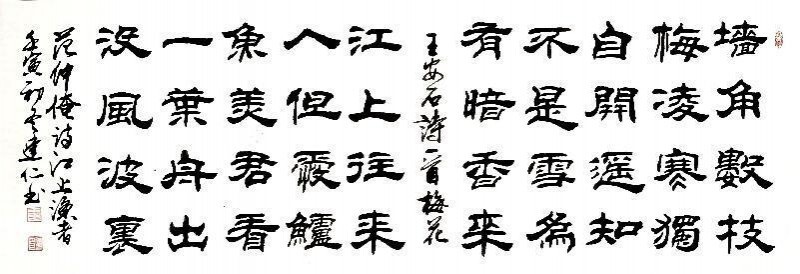 墻角數枝
梅凌寒獨
自開遥知
不是雪為
有暗香來
王安石詩一首梅花
江上往來
人但愛鱸
魚美君看
一葉舟出
没風波裏
范仲淹诗江上漁者
壬寅初冬建仁书